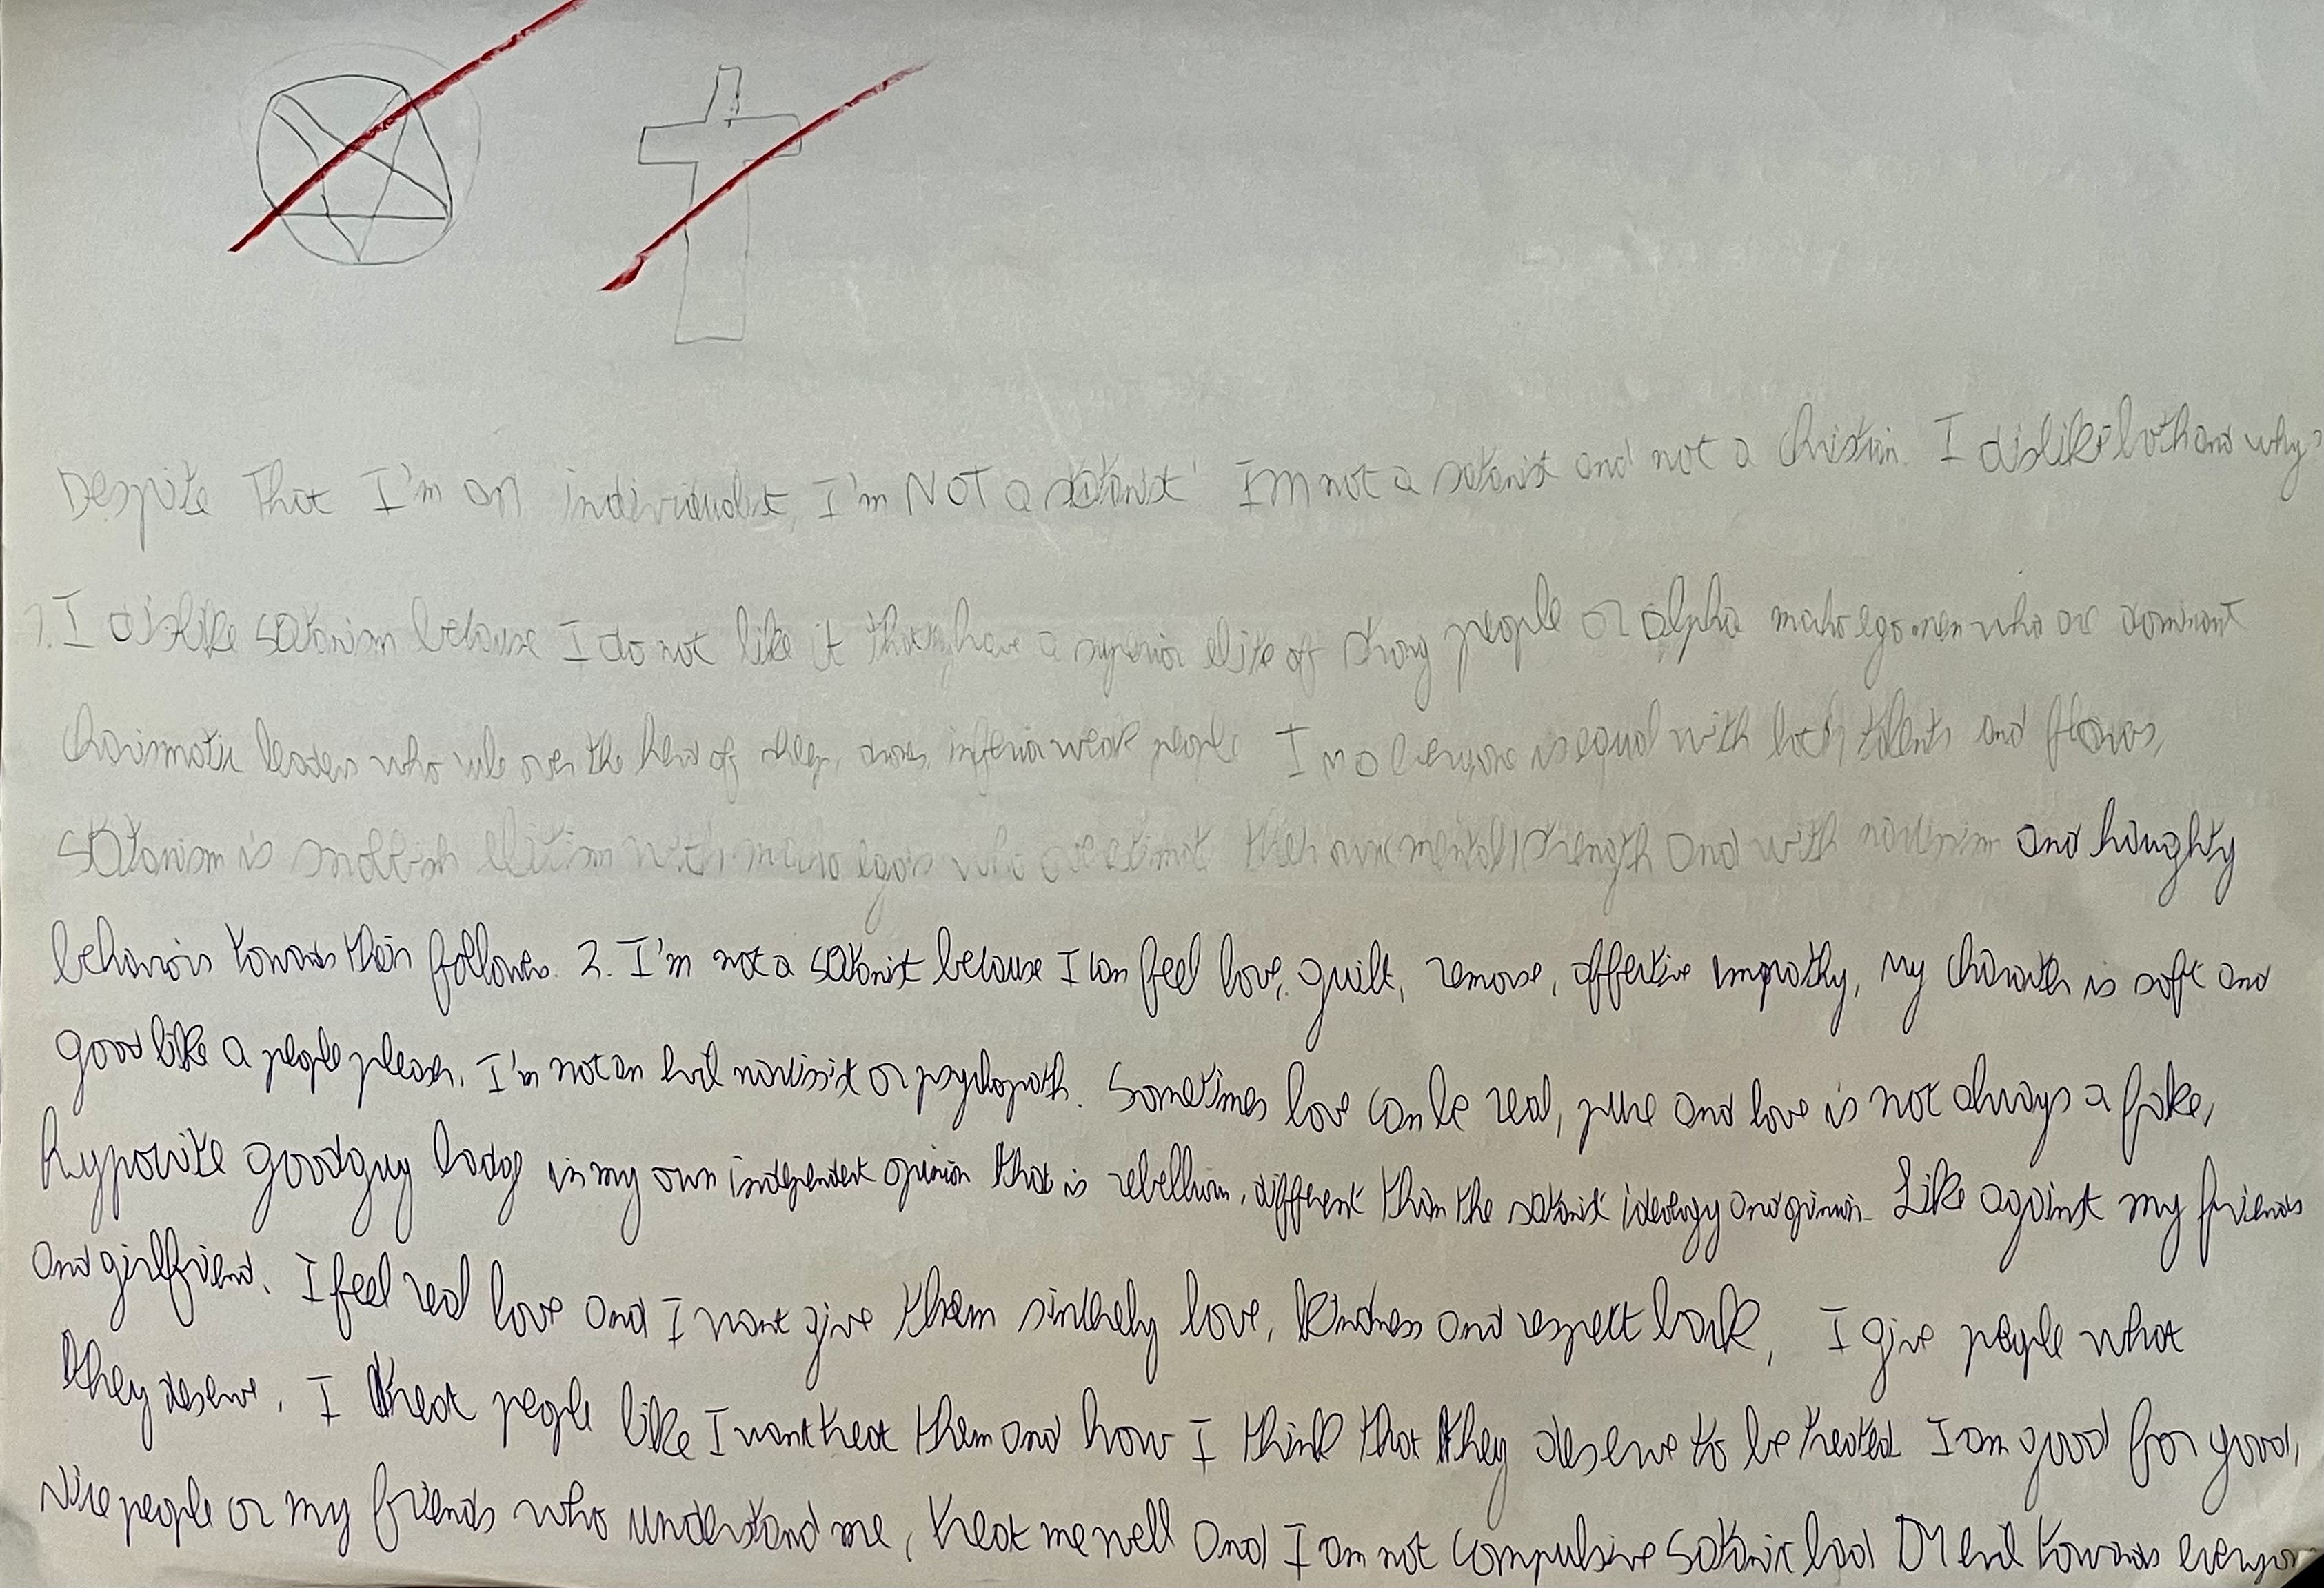 Despite That I'm an individualist, I'm NOT a satanist! I'M not a satanist and not a christin. I dislike both and why?
1. I dislike satanism because I do not like it that they have a superior elite of strong people or alpha macho ego men who are dominant
charismatic leaders who rule over the herd of sheep, drones, inferior weak people. I everyone is equal with both talents and flaws,
satanism is snobbish elitism with macho egos who overestimate their own mental strength and with narcisism and haughty
behaviors towards their followers. 2. I'm not a satanist because I can feel love, guilt, remorse, affective empathy, my charakter is soft and
good like a people pleaser. I'm not an evil narcissist or psychopath. Sometimes love can be real, pure and love is not always a fake,
hypocrite good guy badge in my own independent opinion that is rebellious, different than the satanist ideology and opinion. Like against my friends
and girlfriend. I feel real love and I want give them sincerely love, kindness and respect back, I give people what
they deserve. I treat people like I want treat them and how I think that they deserve to be treated I am good for good,
nice people or my friends who understand me, treat me well and I am not compulsive satanic bad or evil towards everyone